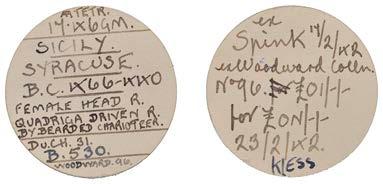 AR TETR.
17.1X6GM.
SICILY.
SYRACUSE.
B.C. 1X66-1XX0
FEMALE HEAD R.
QUADRIGA DRIVEN R.
BY BEARDED CHARIOTEER.
DU.CH. 31.
B. 530.
WOODWARD. 96.
ex
Spink 14/2/1X2
ex Woodward Colln.
No 96. £01/-/-
for £0N/-/-
23/2/1X2.
K/ESS